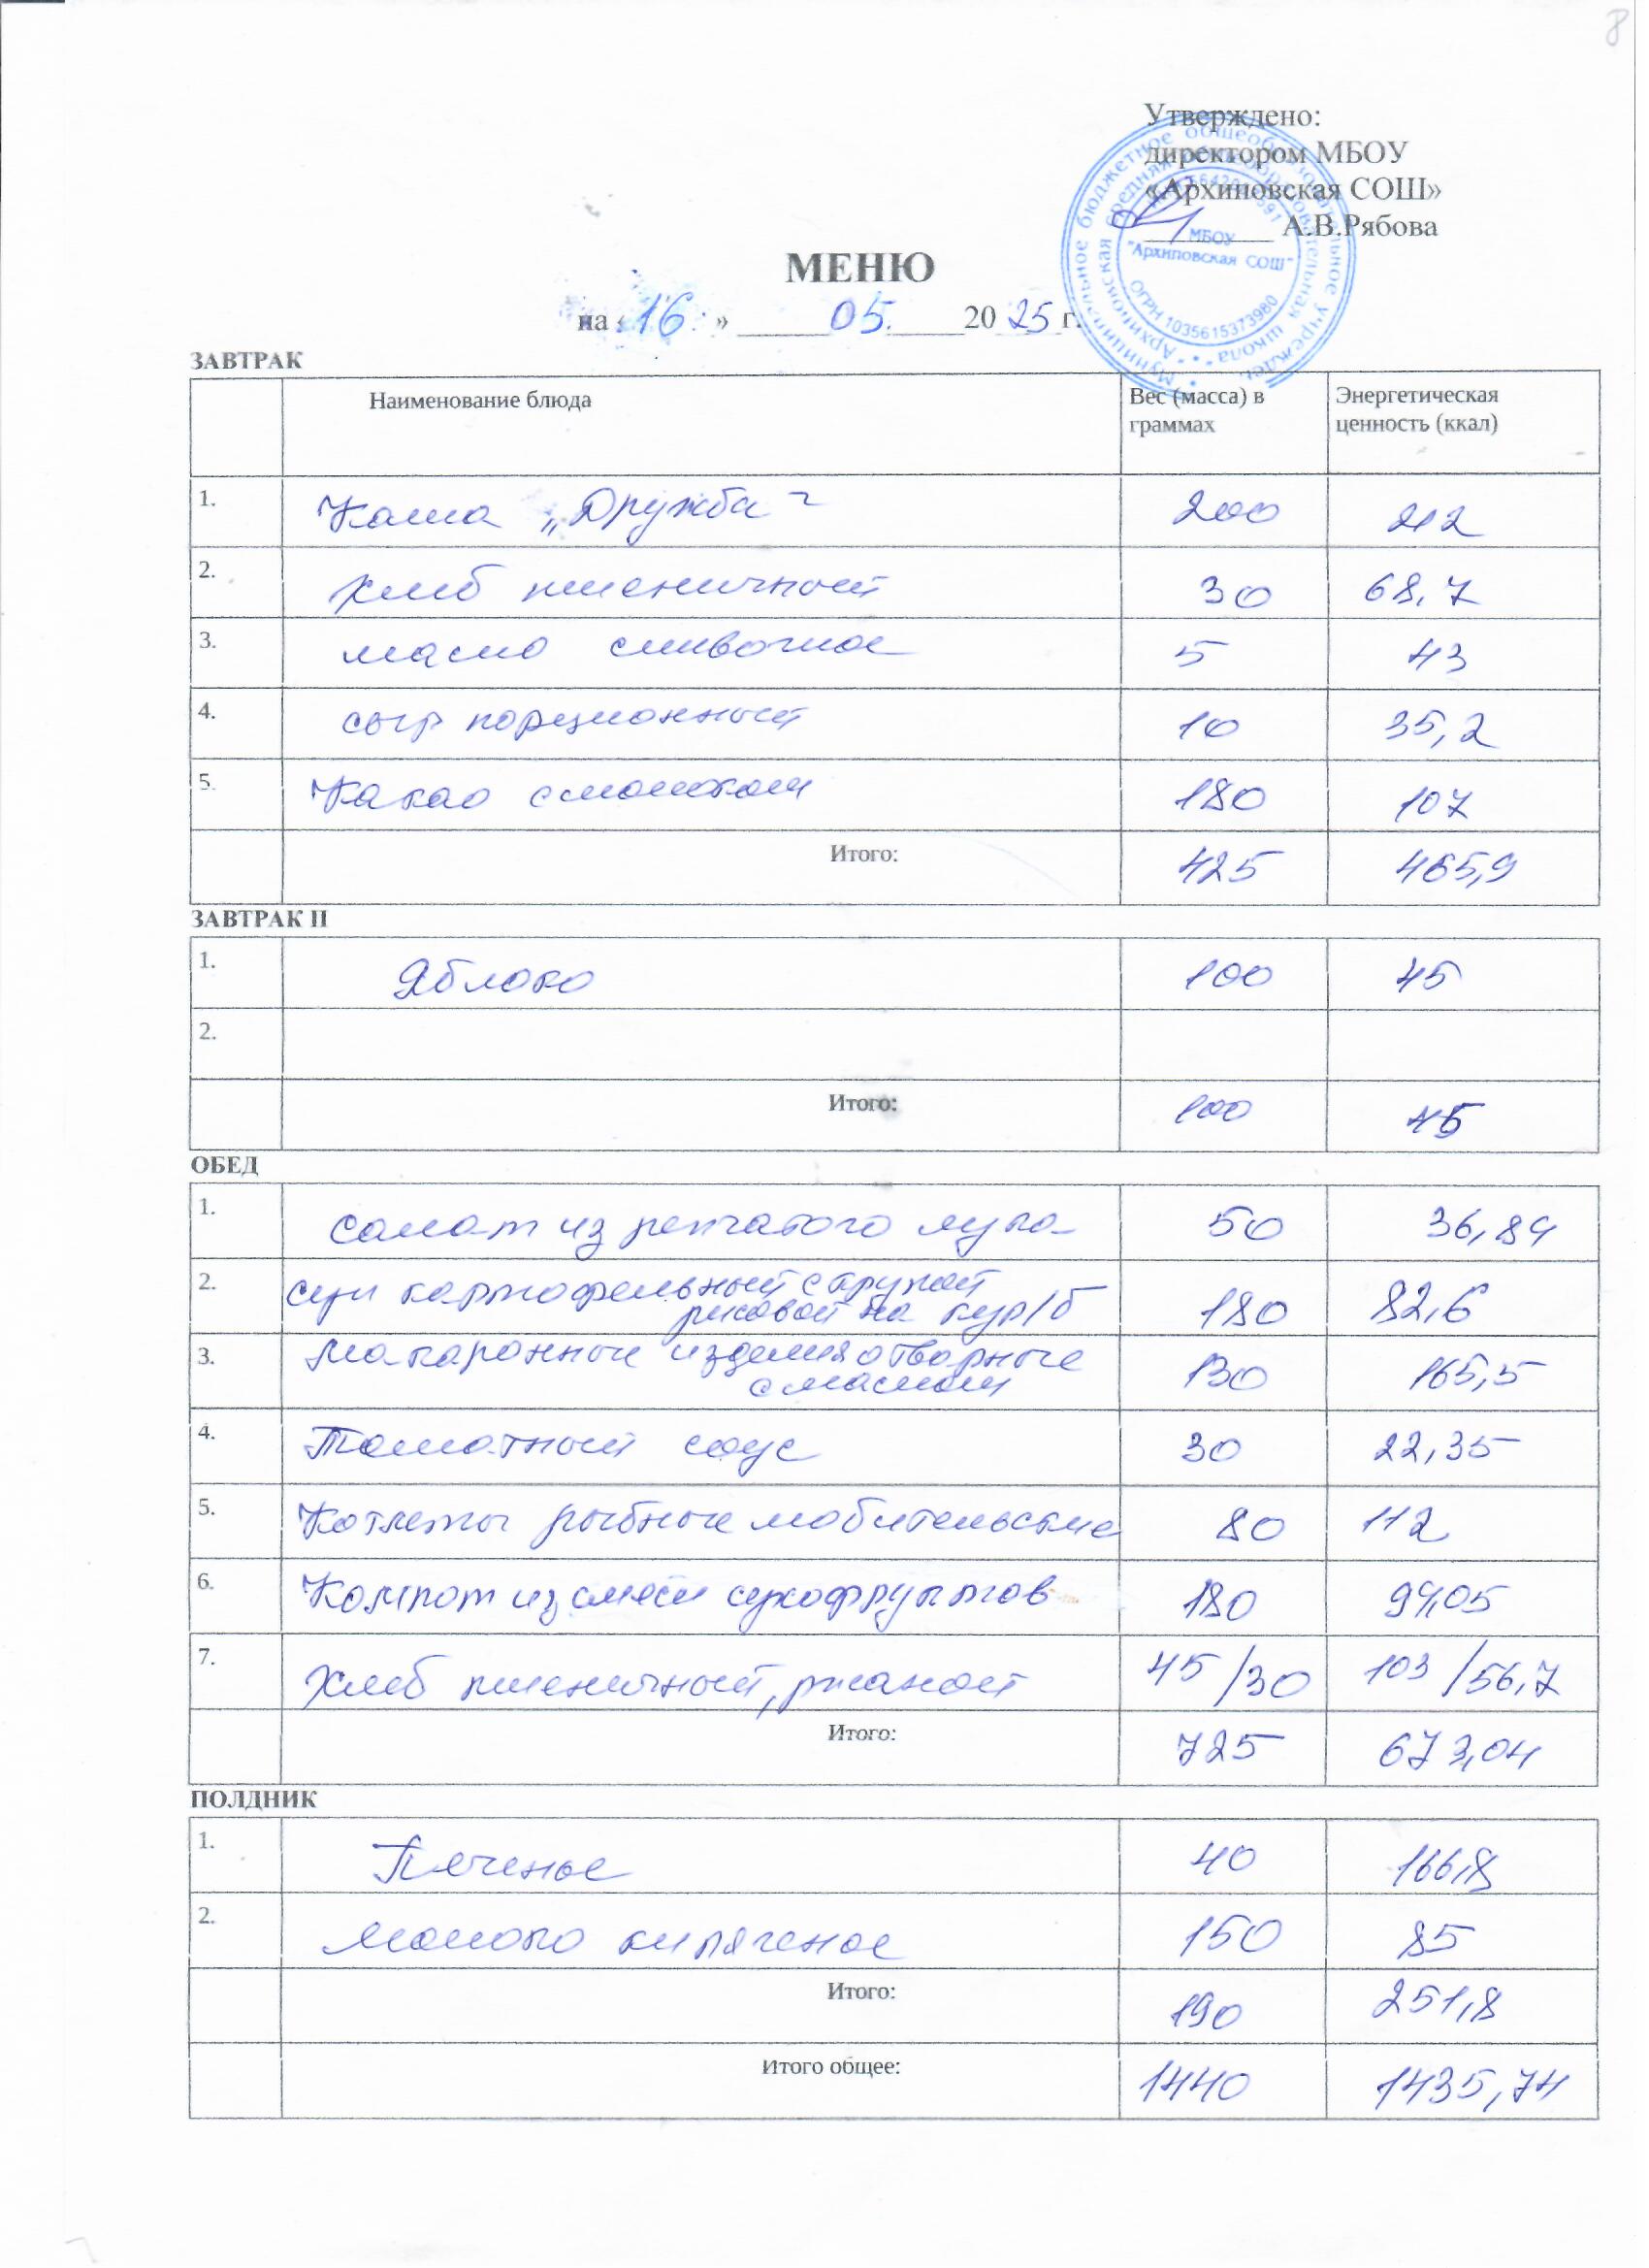 8
Утверждено:
директором МБОУ
«Архиповская СОШ»
А.В.Рябова
МБОУ
"Архиповская СОШ"
ОГРН 1035615373980
МЕНЮ
на «16» 05. 2025 г.
ЗАВТРАК
Наименование блюда Вес (масса) в граммах Энергетическая ценность (ккал)
1. Каша „Дружба" 200 212
2. Хлеб пшеничный 30 68,7
3. масло сливочное 5 43
4. сыр порционный 10 35,2
5. Какао с молоком 180 107
Итого: 425 465,9
ЗАВТРАК II
1. Яблоко 100 45
2.
Итого: 100 45
ОБЕД
1. салат из репчатого лука 50 36,84
2. суп картофельный с крупой
рисовой на кур/б 180 82,6
3. Макаронные изделия отварные
с маслом 130 165,5
4. Томатный соус 30 22,35
5. Котлеты рыбные любительские 80 112
6. Компот из смеси сухофруктов 180 94,05
7. Хлеб пшеничный, ржаной 45/30 103/56,7
Итого: 725 673,04
ПОЛДНИК
1. Печенье 40 166,8
2. Молоко кипяченое 150 85
Итого: 190 251,8
Итого общее: 1440 1435,74